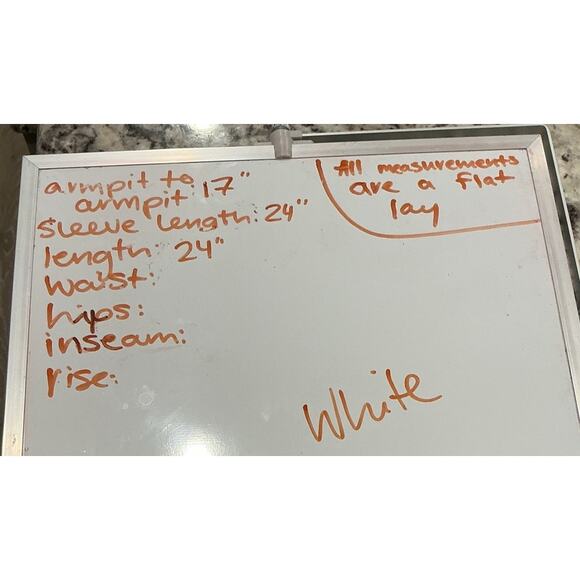 armpit to
armpit: 17"
sleeve length: 24"
length: 24"
waist:
hips:
inseam:
rise:
All measurements
are a flat
lay
White